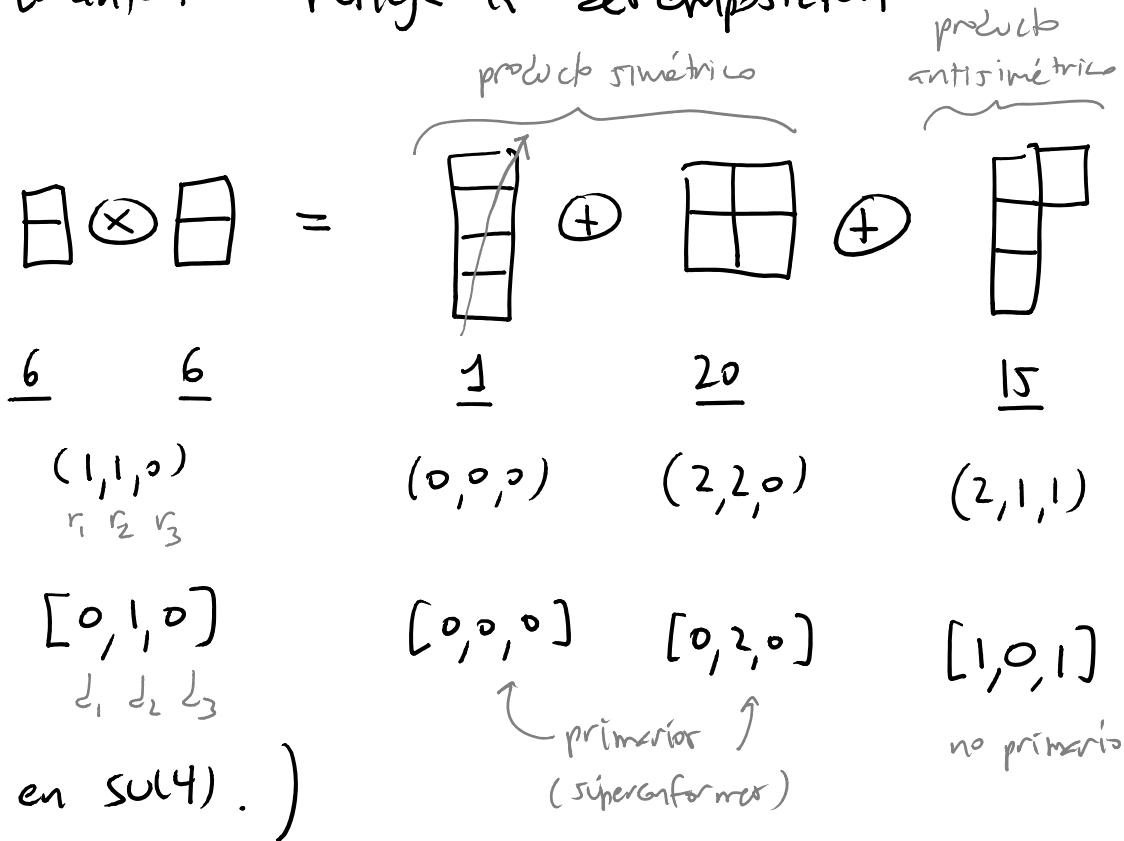 refleja la descomposición
producto simétrico
producto antisimétrico
⊗ = ⊕ ⊕
6 6 1 20 15
(1,1,0) (0,0,0) (2,2,0) (2,1,1)
r₁ r₂ r₃
[0,1,0] [0,0,0] [0,2,0] [1,0,1]
d₁ d₂ d₃
primarios
(súperconformes)
no primario
en su(4). )